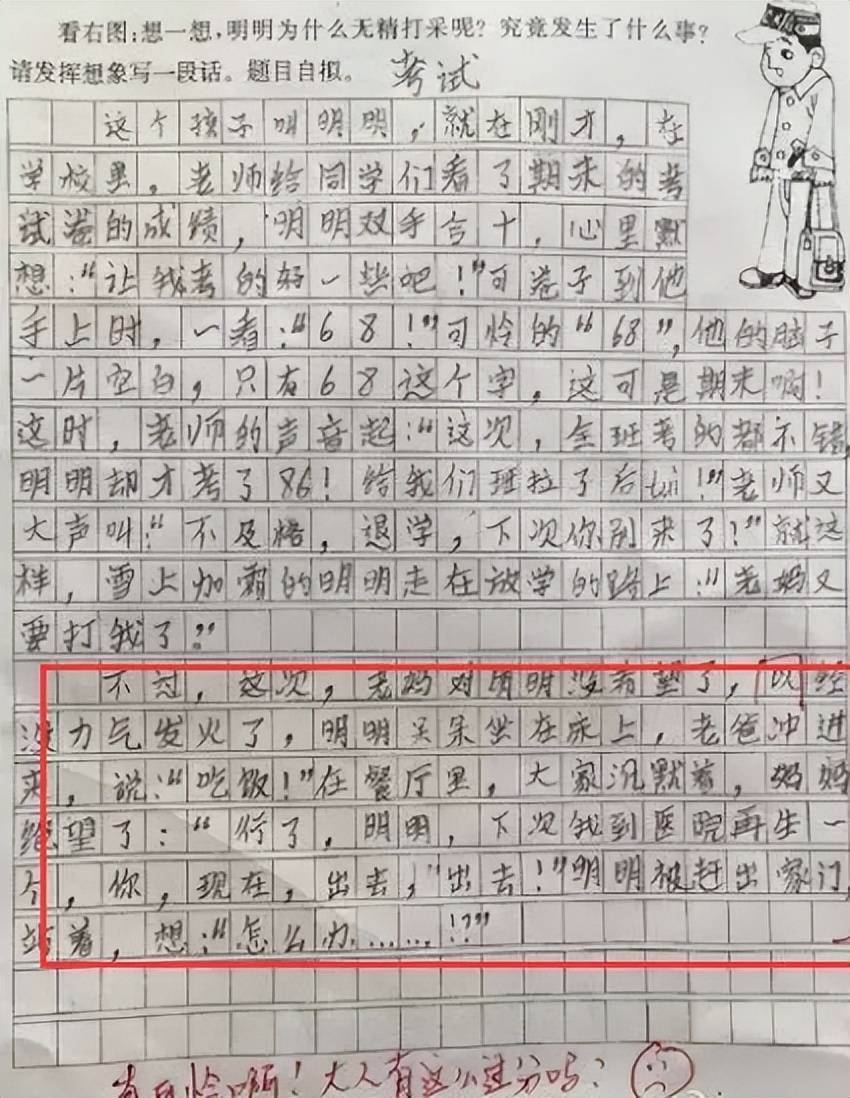 看右图:想一想,明明为什么无精打采呢?究竟发生了什么事?
请发挥想象写一段话。题目自拟。
考试
这个孩子叫明明,就在刚才,在
学校里,老师给同学们看了期末的考
试卷的成绩,明明双手合十,心里默
想:“让我考的好一些吧!”可卷子到他
手上时,一看:“68!”可怜的“68”,他的脑子
一片空白,只有68这个字,这可是期末啊!
这时,老师的声音起:“这次,全班考的都不错,
明明却才考了86!给我们班拉了后tui!”老师又
大声叫:“不及格,退学,下次你别来了!”就这
样,雪上加霜的明明走在放学的路上:“老妈又
要打我了?”
不过,这次,老妈对明明没希望了,已经
没力气发火了,明明呆呆坐在床上,老爸冲进
来,说:“吃饭!”在餐厅里,大家沉默着,妈妈
绝望了:“行了,明明,下次我到医院再生一
个,你,现在,出去,“出去!”明明被赶出家门,
站着,想:“怎么办……!?”
有可怜啊!大人有这么过分吗?